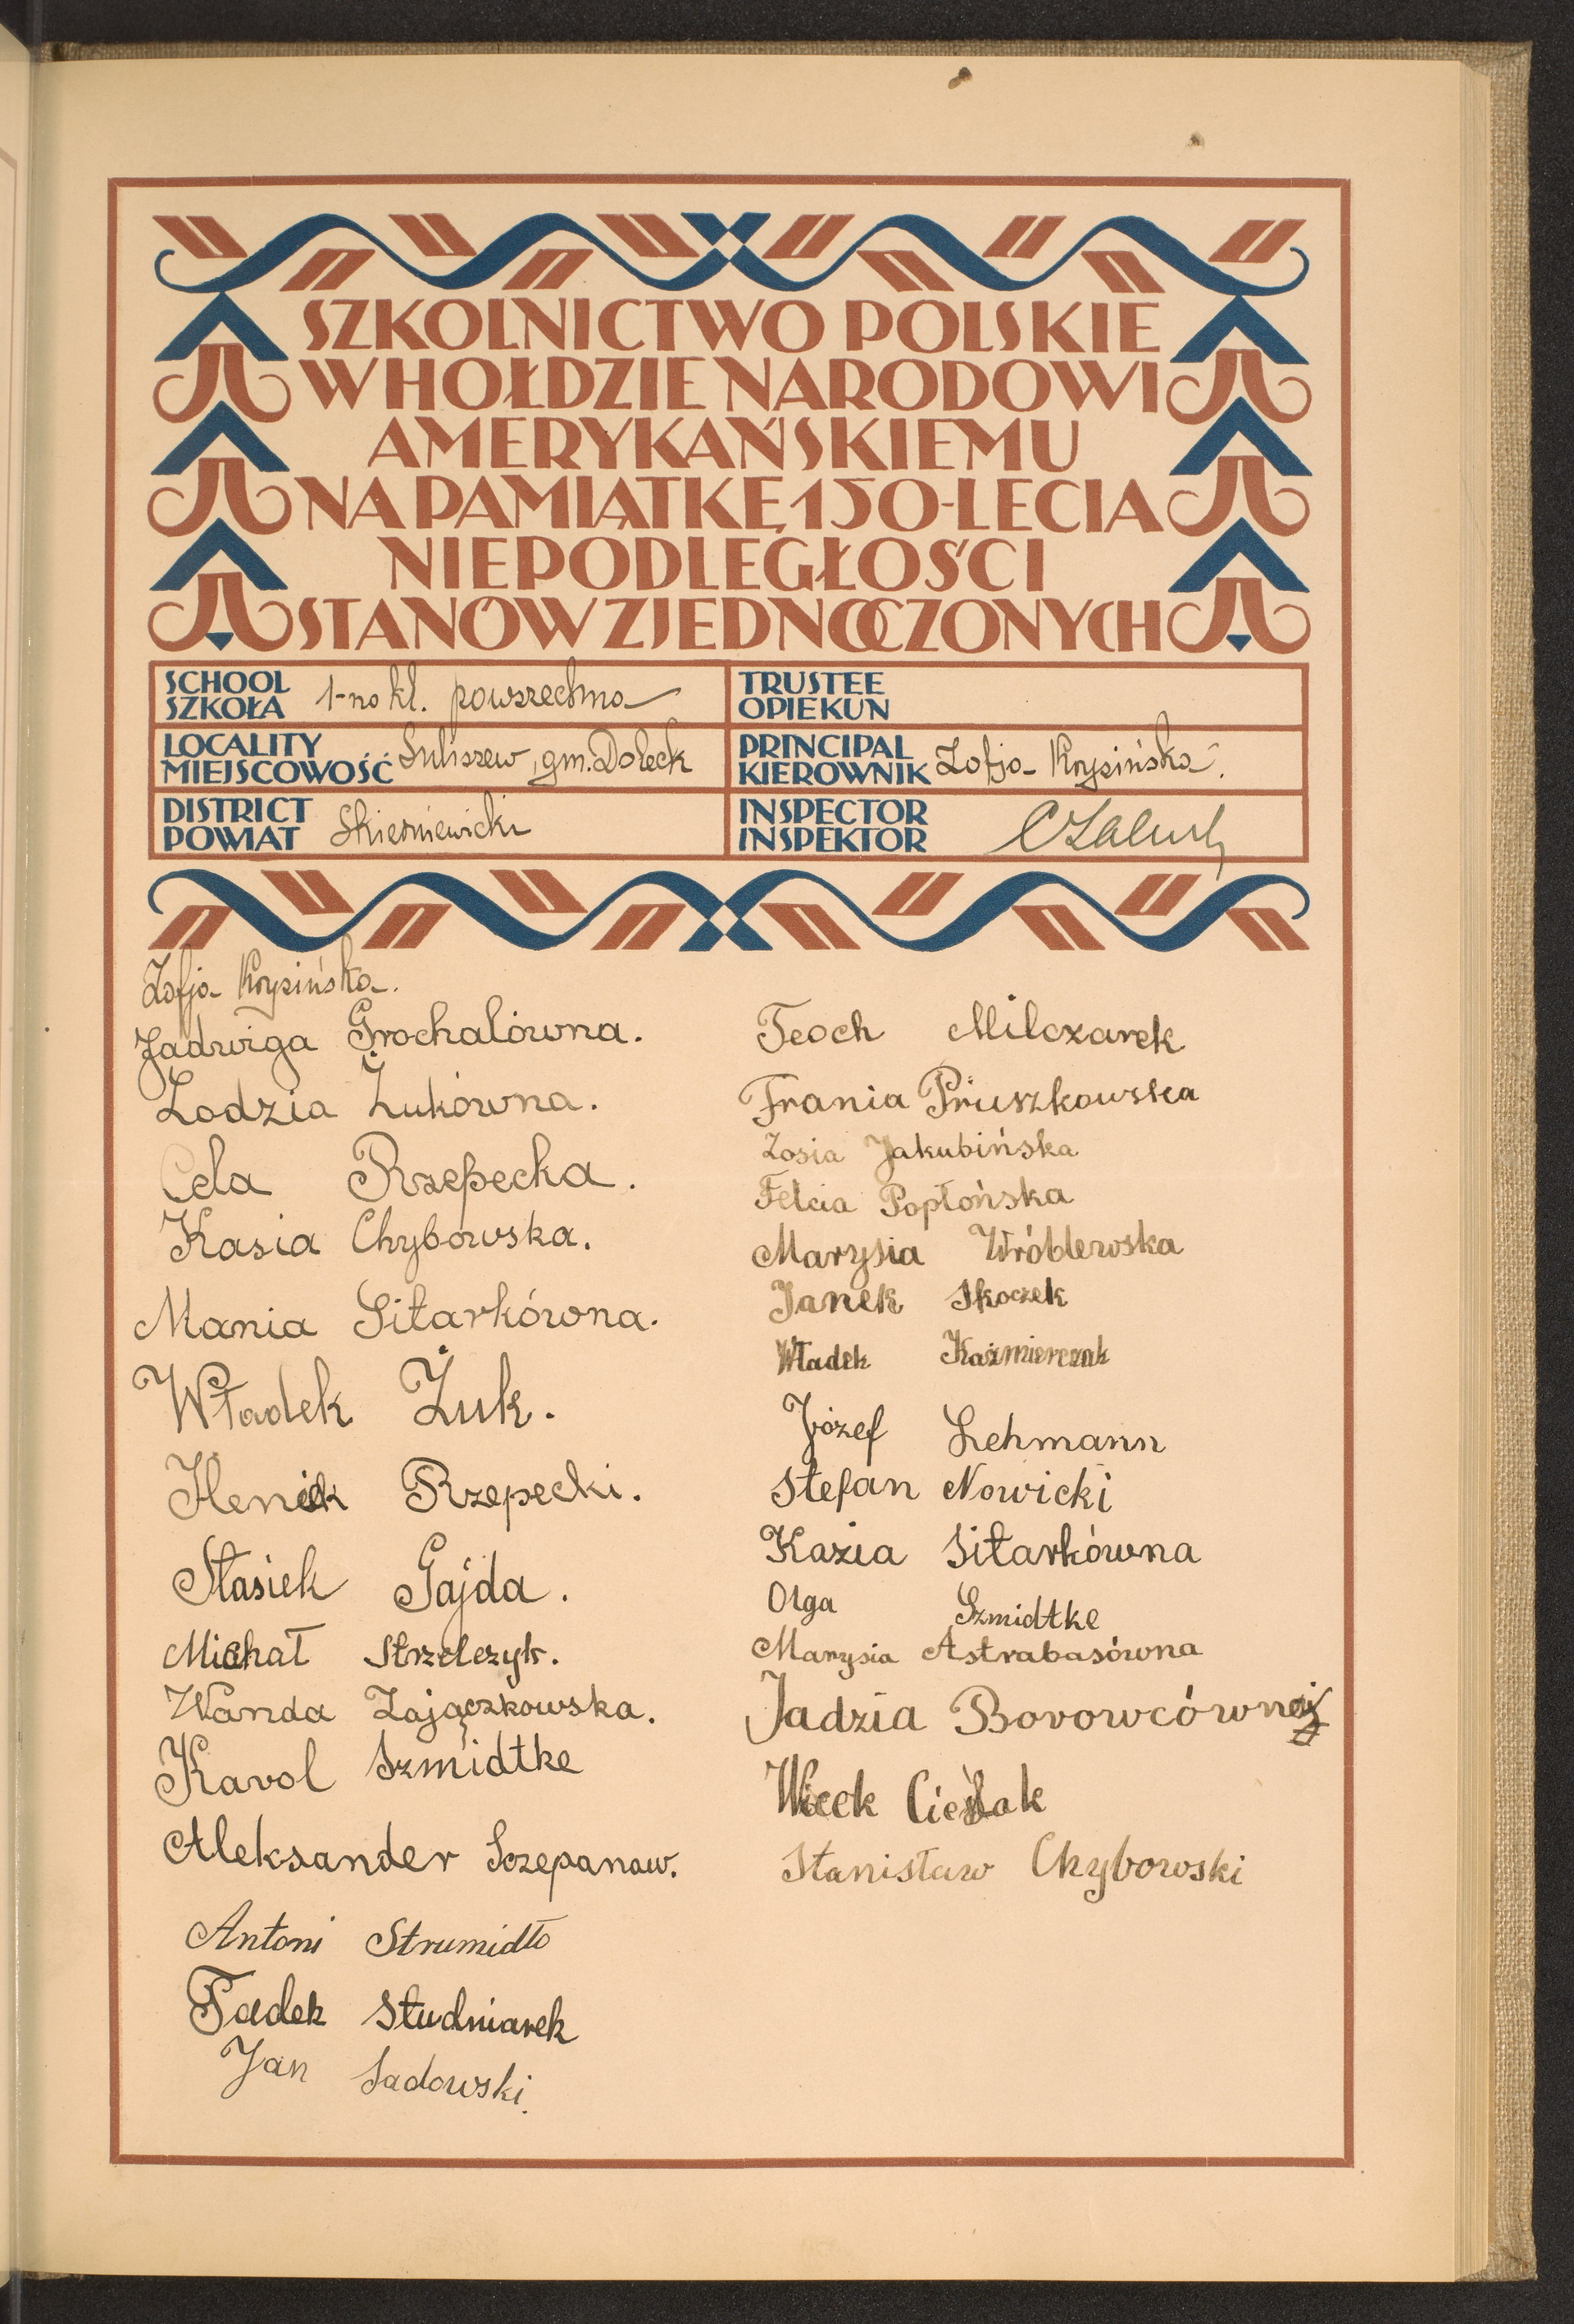 SZKOLNICTWO POLSKIE
W HOŁDZIE NARODOWI
AMERYKAŃSKIEMU
NA PAMIĄTKĘ 150-LECIA
NIEPODLEGŁOŚCI
STANÓW ZJEDNOCZONYCH
SCHOOL
SZKOŁA 1-no kl. powszechna
TRUSTEE
OPIEKUN
LOCALITY
MIEJSCOWOŚĆ Suliszew, gm. Doleck
PRINCIPAL
KIEROWNIK Zofja Krysińska.
DISTRICT
POWIAT Skierniewicki
INSPECTOR
INSPEKTOR
Zofja Krysińska.
Jadwiga Grochalówna.
Lodzia Żukówna.
Cela Rzepecka.
Kasia Chybowska.
Mania Sitarkówna.
Władek Żuk.
Heniek Rzepecki.
Stasiek Gajda.
Michał Strzelczyk.
Wanda Zajączkowska.
Karol Szmidtke
Aleksander Szczepanow.
Antoni Strumidło
Tadek Studniarek
Jan Sadowski.
Teoch Milczarek
Frania Pruszkowska
Zosia Jakubińska
Felcia Popłońska
Marysia Wróblewska
Janek Skoczek
Władek Kaźmierczak
Józef Lehmann
Stefan Nowicki
Kazia Sitarkówna
Olga Szmidtke
Marysia Astrabasówna
Jadzia Borowcówna
Wicek Cieślak
Stanisław Chybowski